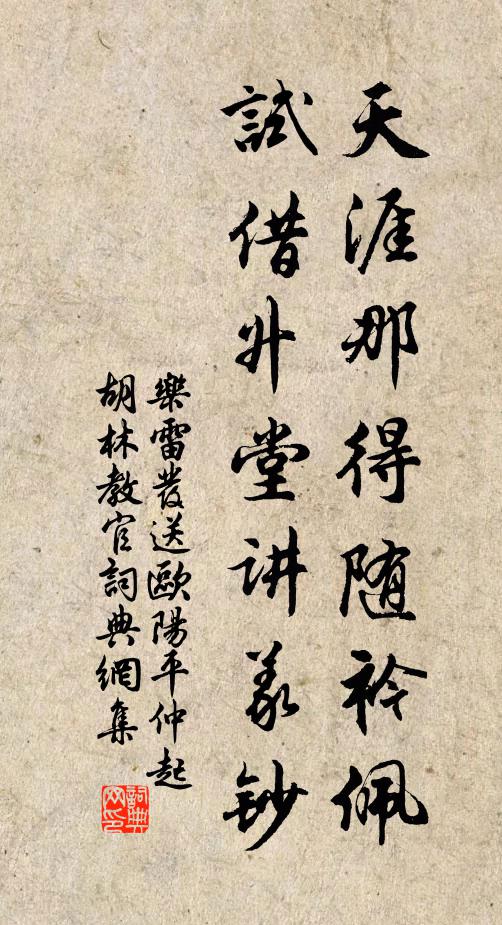 天涯那得随衿佩
試借升堂讲義鈔
樂雷發送歐陽平仲起
胡林教官詞典網集
詞典网印